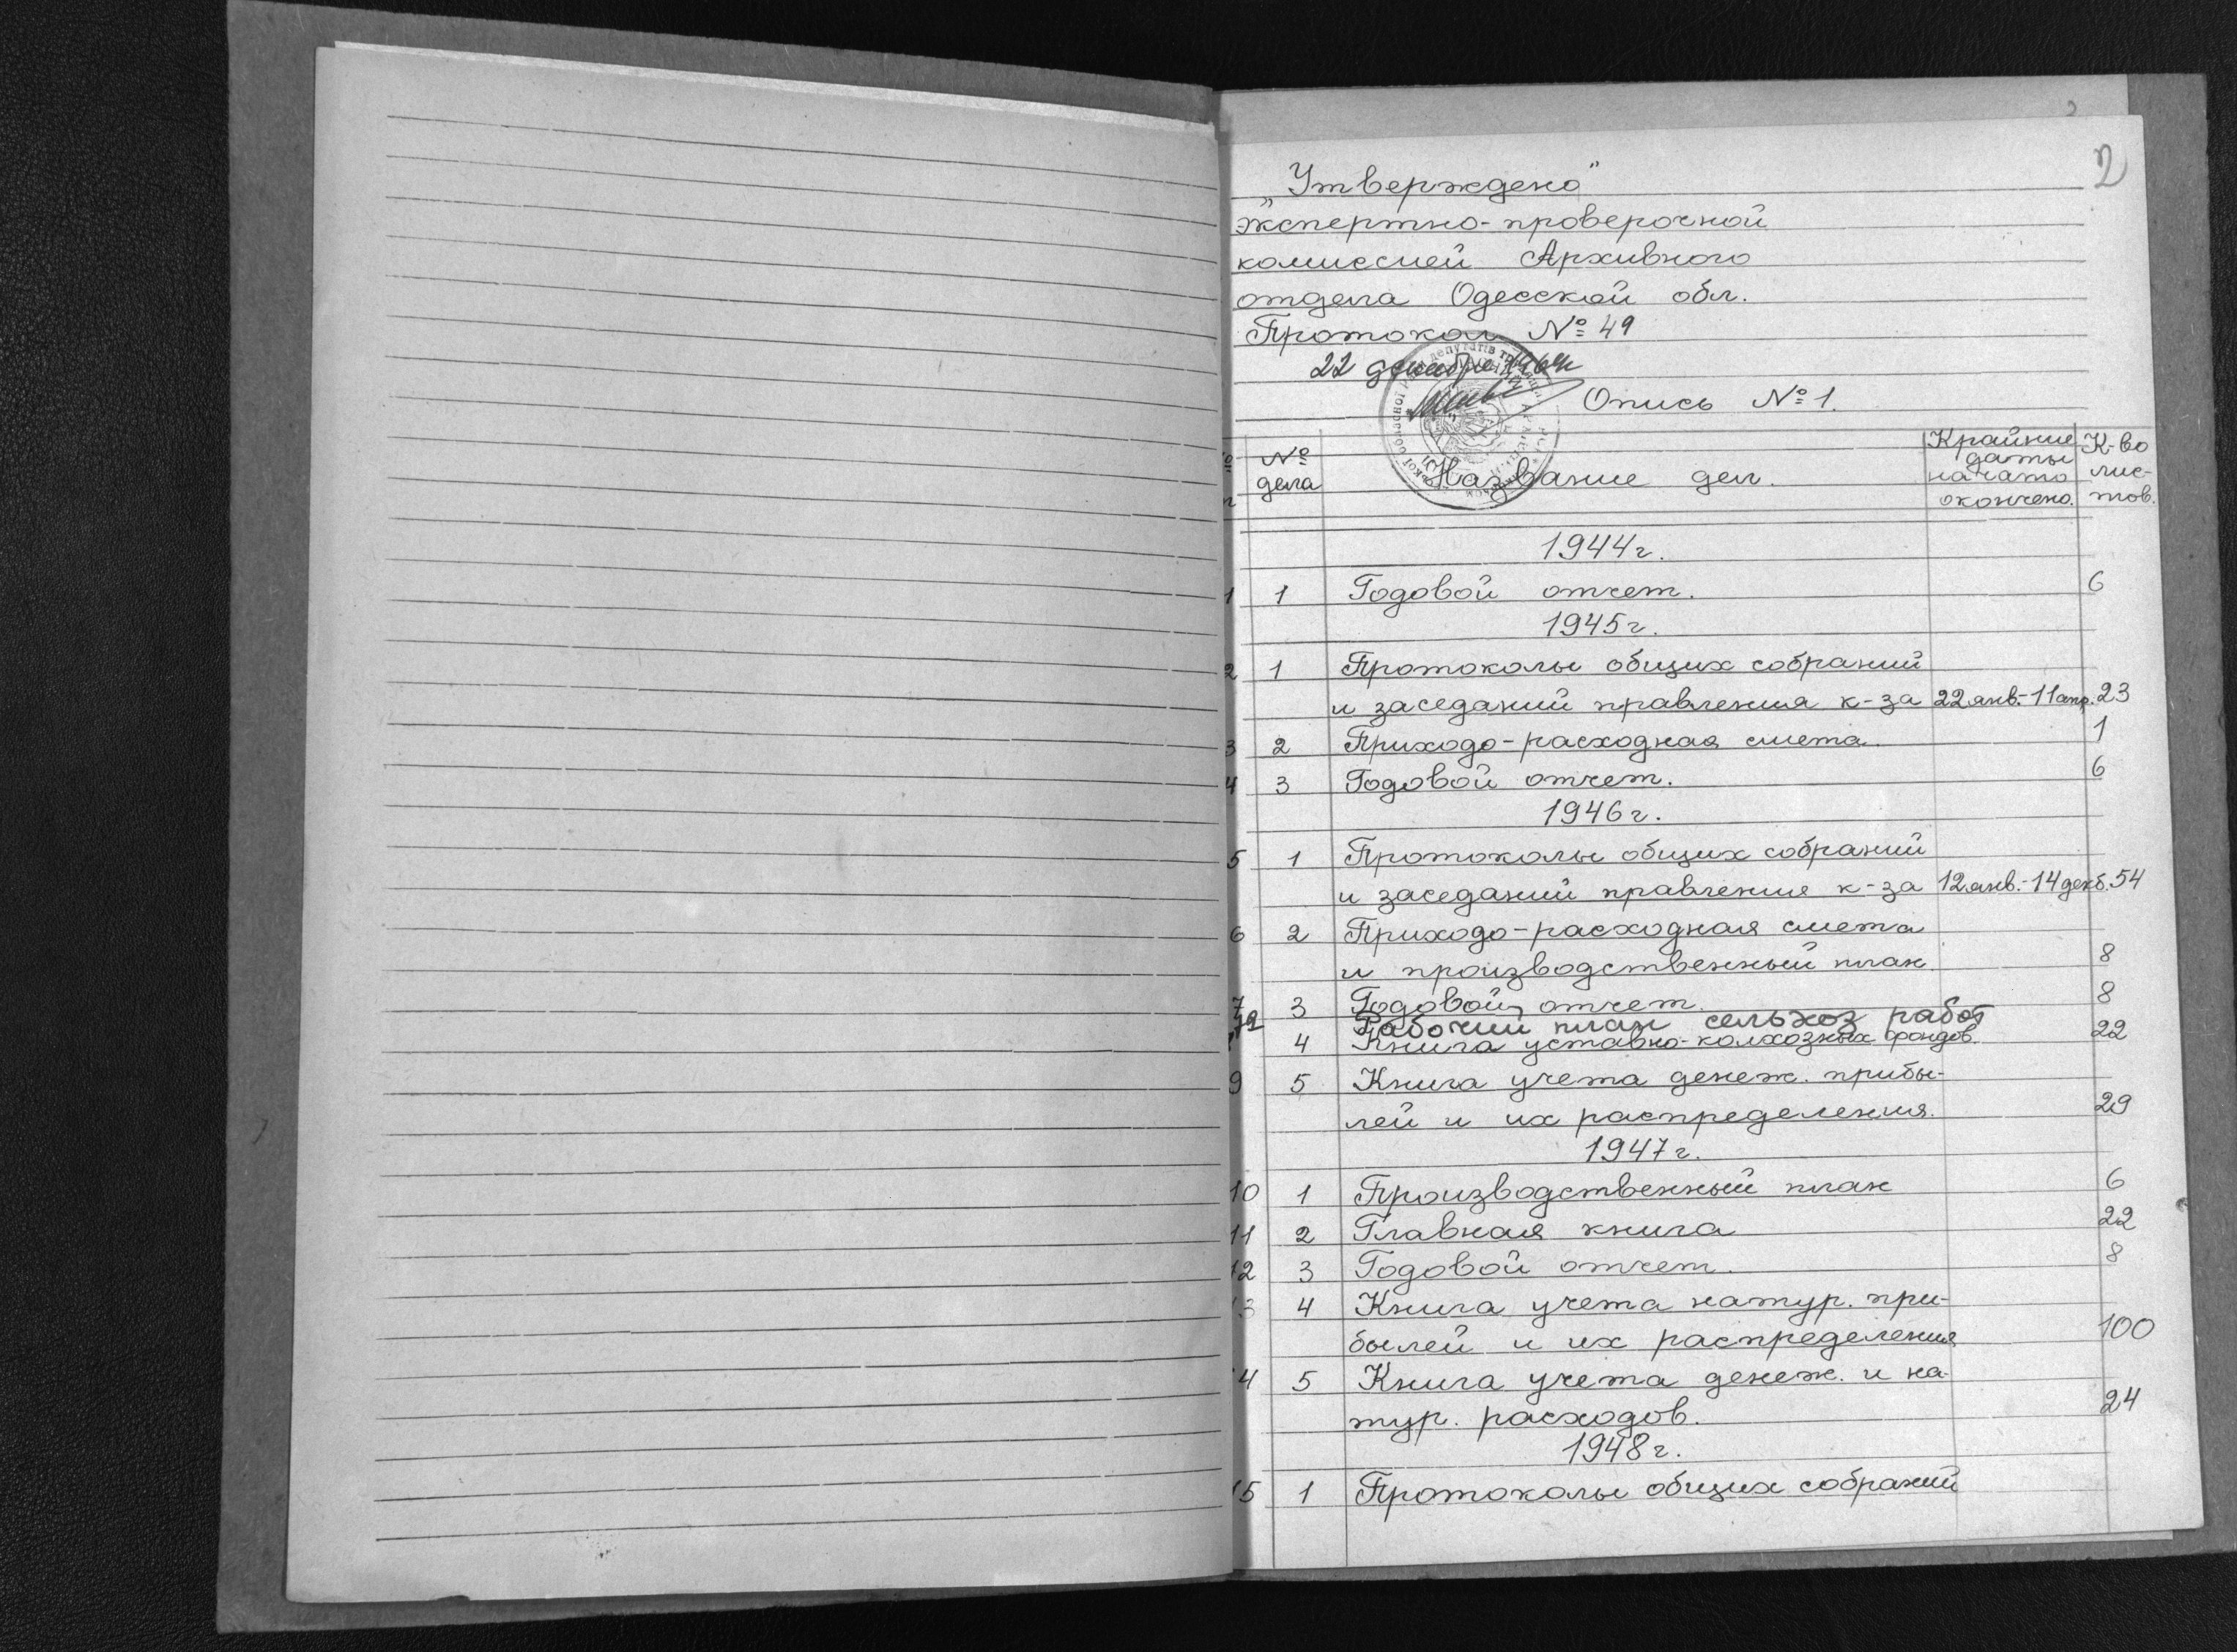 2
„Утверждено"
экспертно-проверочной
комиссией Архивного
отдела Одесской обл.
Протокол № 49
22 декабря 1964
Опись № 1.
№ дела Название дел. Крайние даты начато окончено. К-во лис-тов.
1944 г.
1 1 Годовой отчет. 6
1945 г.
2 1 Протоколы общих собраний
и заседаний правления к-за 22 янв.-11 апр. 23
3 2 Приходо-расходная смета. 1
4 3 Годовой отчет. 6
1946 г.
5 1 Протоколы общих собраний
и заседаний правления к-за 12 янв.-14 декб. 54
6 2 Приходо-расходная смета
и производственный план. 8
7 3 Годовой отчет. 8
7а Рабочий план сельхоз работ
4 Книга уставно-колхозных фондов. 22
9 5 Книга учета денеж. прибы-
лей и их распределения. 29
1947 г.
10 1 Производственный план 6
11 2 Главная книга 22
12 3 Годовой отчет. 8
13 4 Книга учета натур. при-
былей и их распределения 100
14 5 Книга учета денеж. и на-
тур. расходов. 24
1948 г.
15 1 Протоколы общих собраний